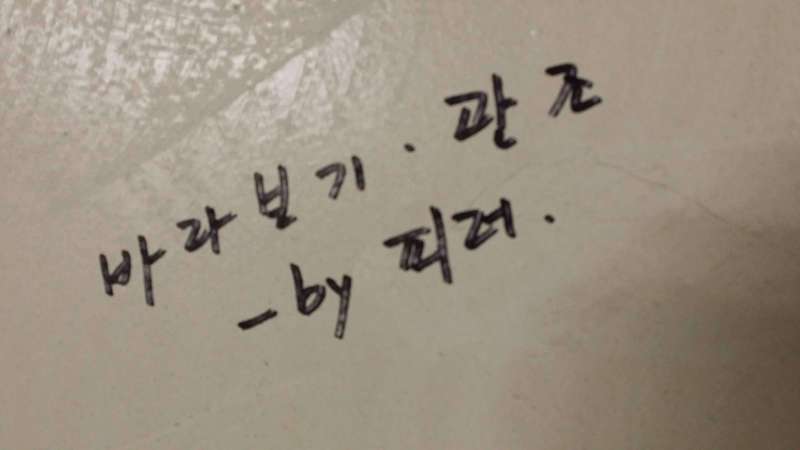 바라보기. 관조
- by 피러.